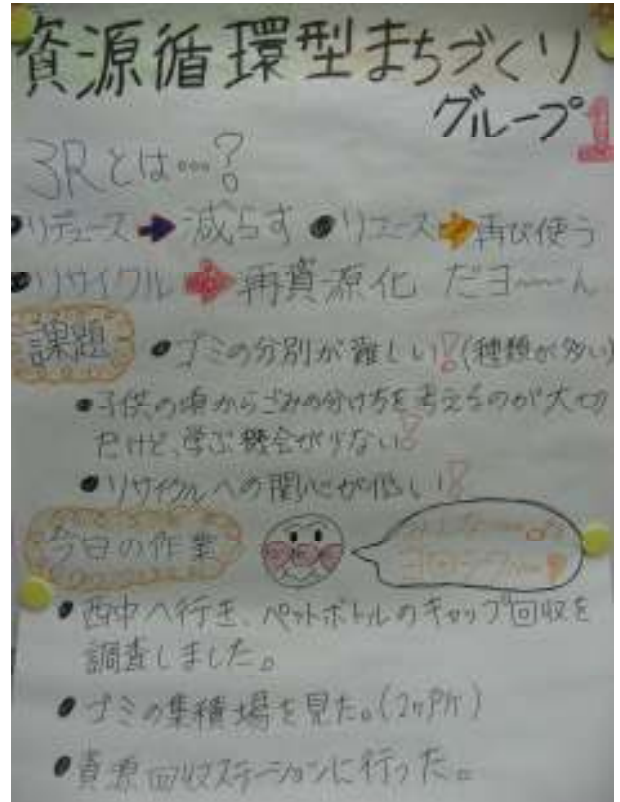 資源循環型まちづくり
グループ1
3Rとは…?
●リデュース➡減らす ●リユース➡再び使う
●リサイクル➡再資源化 だヨ〜〜ん
課題 ●ゴミの分別が難しい!(種類が多い)
●子供の頃からごみの分け方を考えるのが大切
だけど、学ぶ機会が少ない!
●リサイクルへの関心が低い!
今日の作業
●西中へ行き、ペットボトルのキャップ回収を
調査しました。
●ゴミの集積場を見た。(2ヶ所)
●資源回収ステーションに行った。